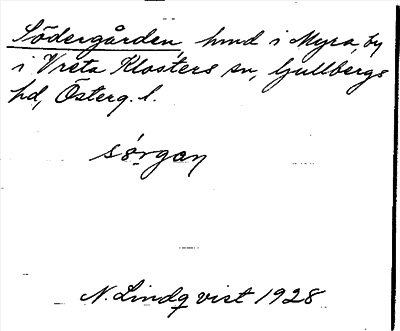 Södergården, hmd i Myra, by
i Vreta Klosters sn, Gullbergs
hd, Österg. l.
sǿrgan
N. Lindqvist 1928